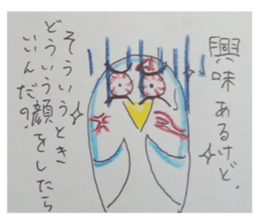 興味あるけど、
そういうとき
どういう顔をしたら
いいんだ？